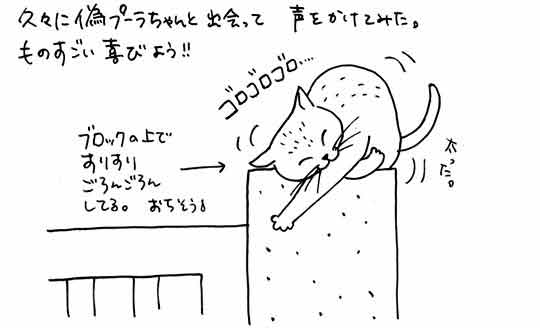 久々に偽プーラちゃんと出会って 声をかけてみた。
ものすごい喜びよう!!
ゴロゴロゴロ...
ブロックの上で
すりすり
ごろんごろん
してる。 おちそう。
太った。